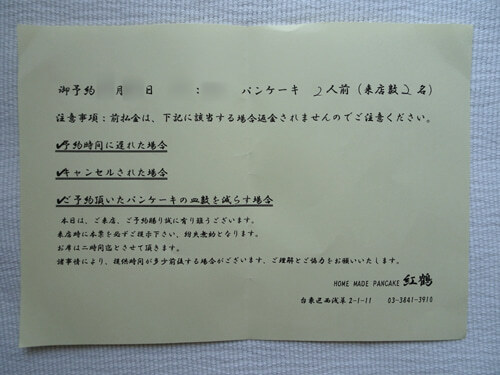 御予約 月 日 : パンケーキ 2人前(来店数2名)
注意事項:前払金は、下記に該当する場合返金されませんのでご注意ください。
✓予約時間に遅れた場合
✓キャンセルされた場合
✓ご予約頂いたパンケーキの皿数を減らす場合
本日は、ご来店、ご予約賜り誠に有り難うございます。
来店時に本票を必ずご提示下さい、紛失無効となります。
お席は二時間迄とさせて頂きます。
諸事情により、提供時間が多少前後する場合がございます、ご理解とご協力をお願いいたします。
HOME MADE PANCAKE 紅鶴
台東区西浅草2-1-11 03-3841-3910